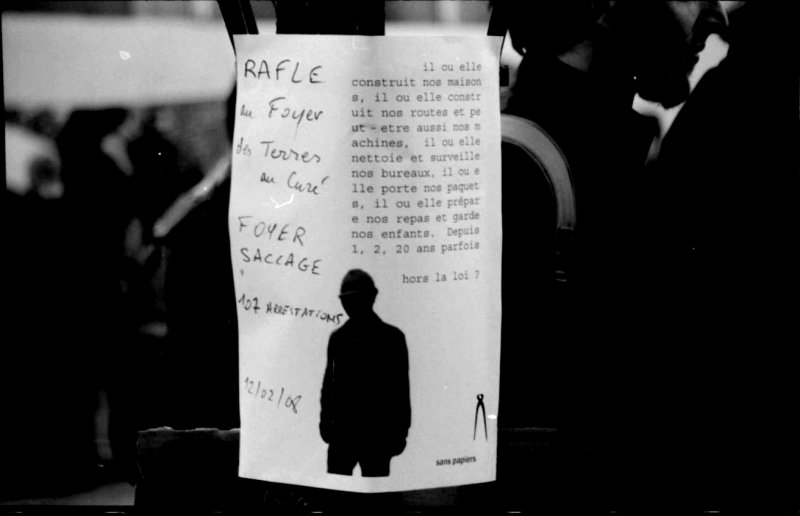 RAFLE
au Foyer
des Terres
au Curé
FOYER
SACCAGE
107 ARRESTATIONS
12/02/08
il ou elle
construit nos maison
s, il ou elle constr
uit nos routes et pe
ut - etre aussi nos m
achines, il ou elle
nettoie et surveille
nos bureaux, il ou e
lle porte nos paquet
s, il ou elle prépar
e nos repas et garde
nos enfants. Depuis
1, 2, 20 ans parfois
hors la loi ?
sans papiers